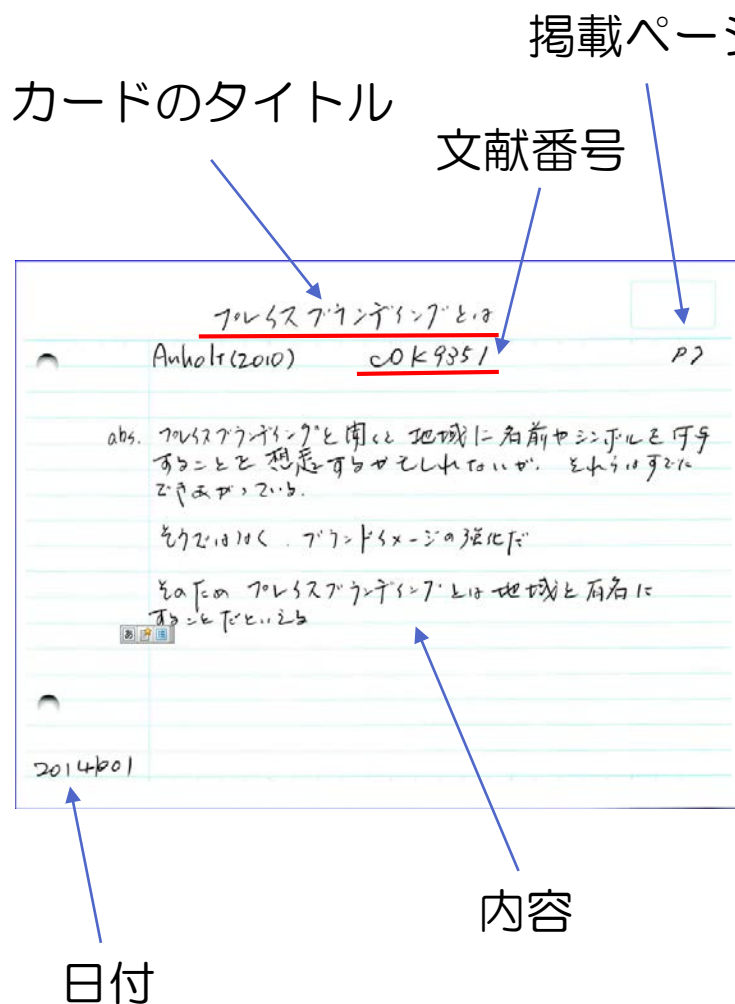 掲載ページ
カードのタイトル
文献番号
プレイスブランディングとは
Anholt(2010) cOK9351 P7
abs. プレイスブランディングと聞くと 地域に名前やシンボルを付与
することを想起するかもしれないが、それらはすでに
できあがっている.
そうではなく、ブランドイメージの強化だ
そのため プレイスブランディングとは地域を有名に
することだといえる
あ
内容
日付